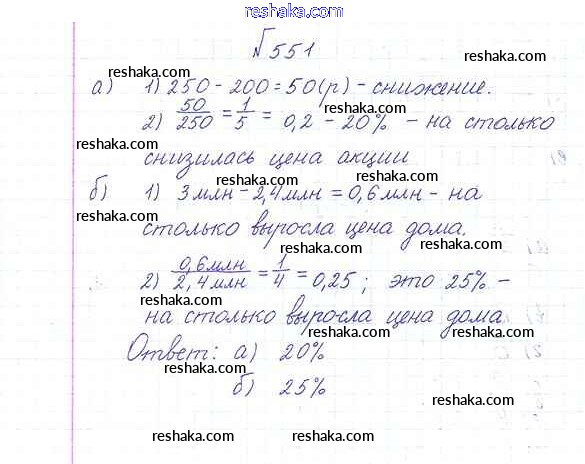 www.reshaka.com
√551
reshaka.com
а) 1) 250 - 200 = 50(р) - снижение.
reshaka.com
2) 50/250 = 1/5 = 0,2 - 20% - на столько
reshaka.com
reshaka.com
снизилась цена акции
reshaka.com
б) 1) 3 млн - 2,4 млн = 0,6 млн - на
reshaka.com
столько выросла цена дома.
reshaka.com
reshaka.com
2) 0,6 млн/2,4 млн = 1/4 = 0,25 ; это 25% -
reshaka.com
reshaka.com
на столько выросла цена дома
reshaka.com
Ответ: а) 20%
reshaka.com
reshaka.com
б) 25%
reshaka.com
reshaka.com